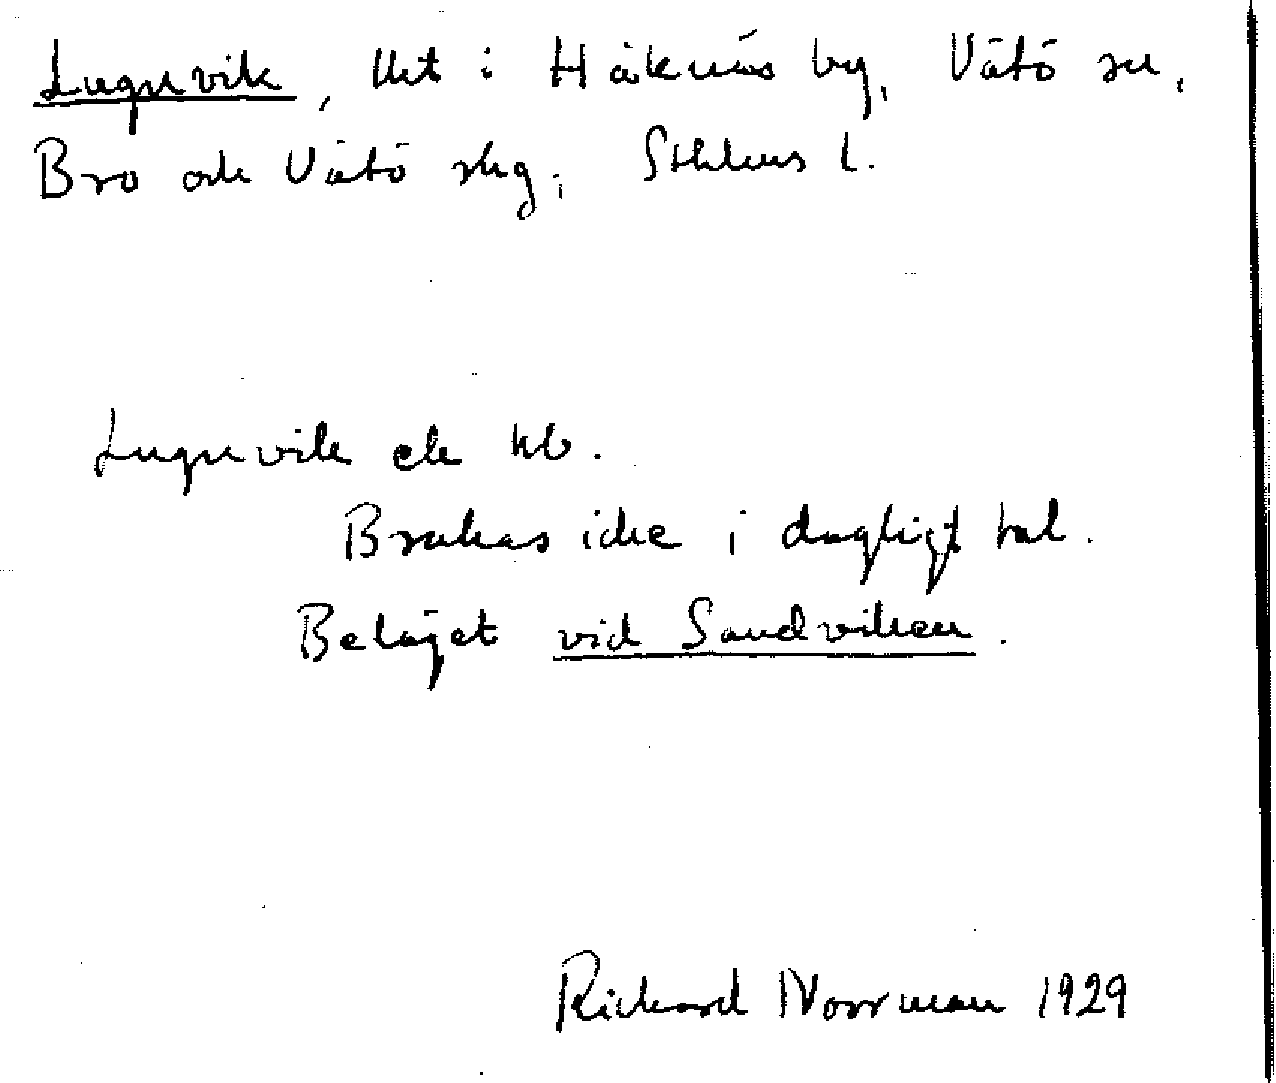 Lugnvik, lht i Håknäs by, Vätö sn,
Bro och Vätö skg, Sthlms l.
Lugnvik ek kb.
Brukas icke i dagligt tal.
Beläget vid Sandviken.
Richard Norrman 1929